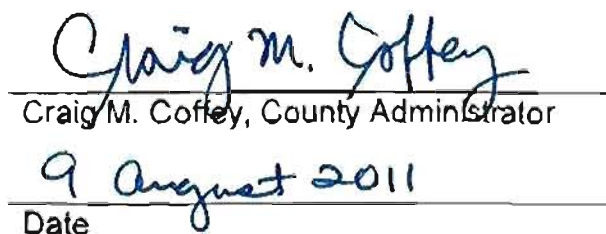 Craig M. Coffey
Craig M. Coffey, County Administrator
9 August 2011
Date